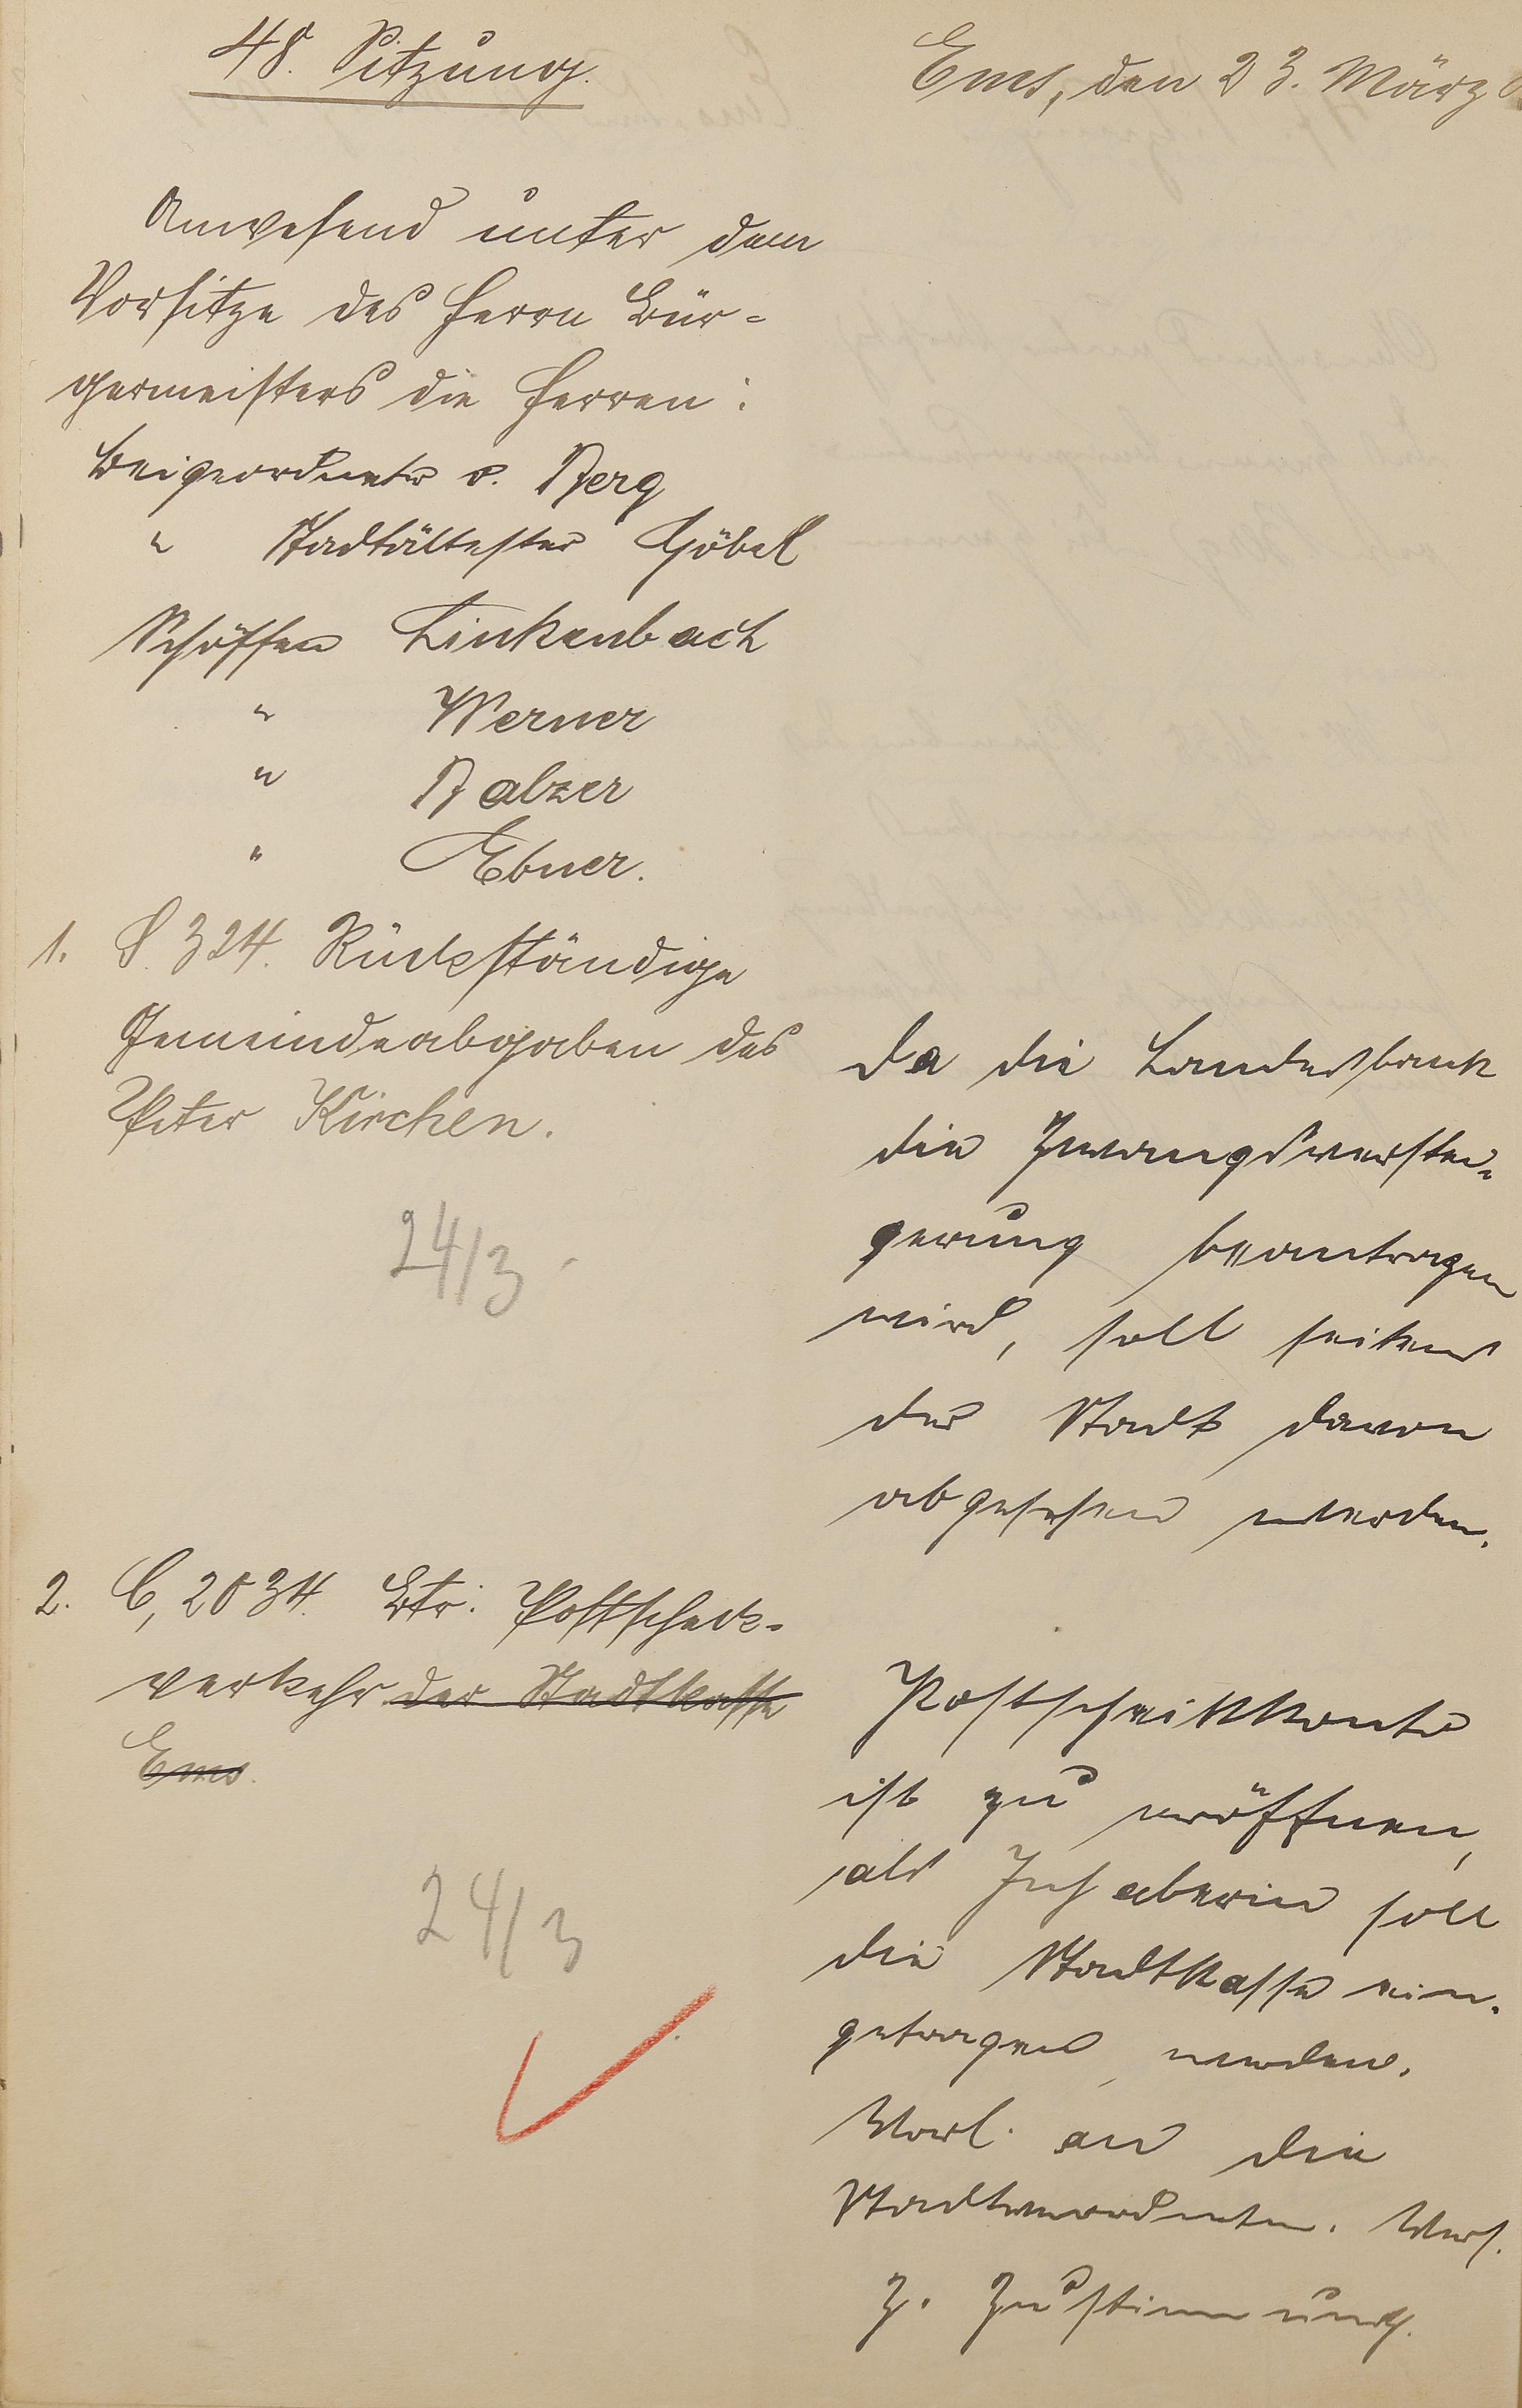 48. Sitzung.
Ems, den 23. März
Anwesend unter dem
Vorsitze des Herrn Bür-
germeisters die Herren:
Beigeordneter v. Berg
" Stadtältester Göbel
Schöffen Linkenbach
" Werner
" Balzer
" Ebner.
1. S. 324. Rückständige
Gemeindeabgaben des
Peter Kirchen.
24/3
Da die Landesbank
die Zwangsverstei-
gerung beantragen
wird, soll seitens
der Stadt davon
abgesehen werden.
2. C, 2034. Btr: Postscheck-
verkehr der Stadtkasse
Ems.
24/3
Postscheckkonto
ist zu eröffnen,
als Inhaberin soll
die Stadtkasse ein-
getragen werden.
Vorl. an die
Stadtverordneten. Vers.
z. Zustimmung.